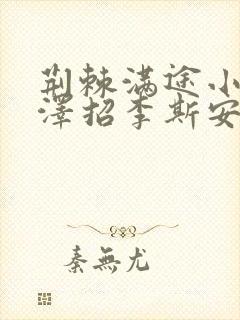 荆棘满途小
泽招李斯安
秦無尤